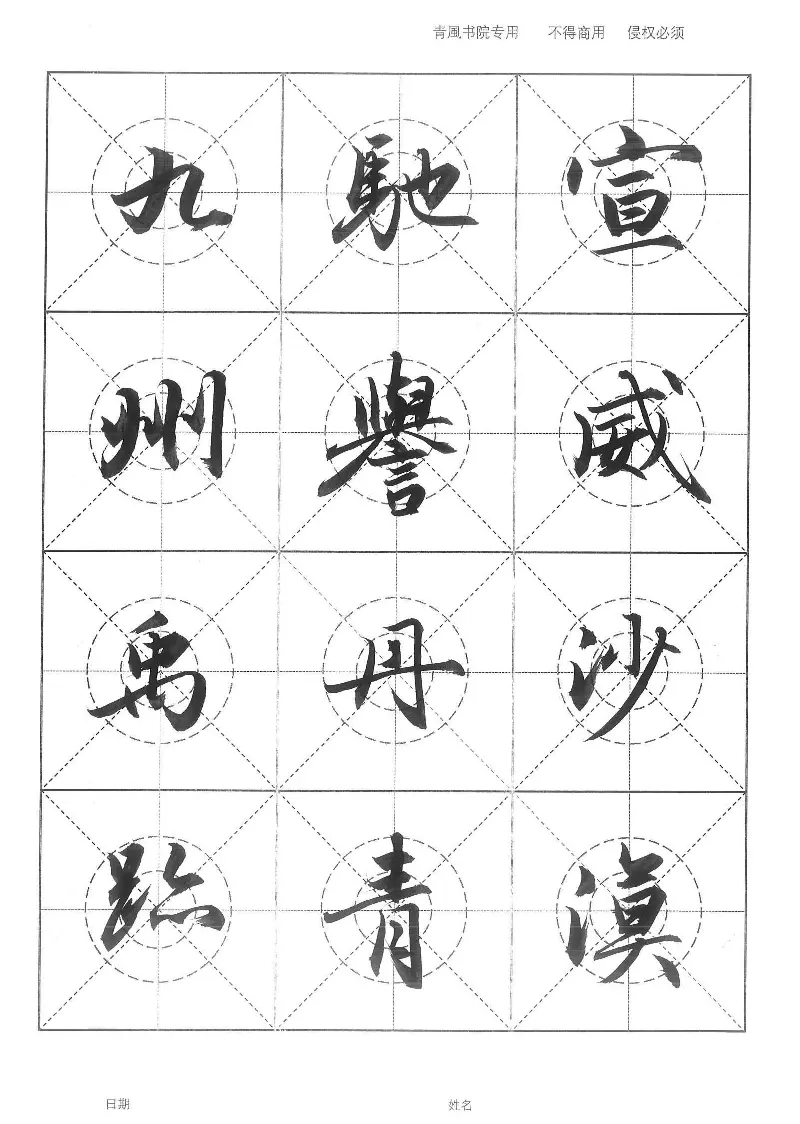 青風书院专用 不得商用 侵权必须
宣威沙漠
馳譽丹青
九州禹跡
日期 姓名